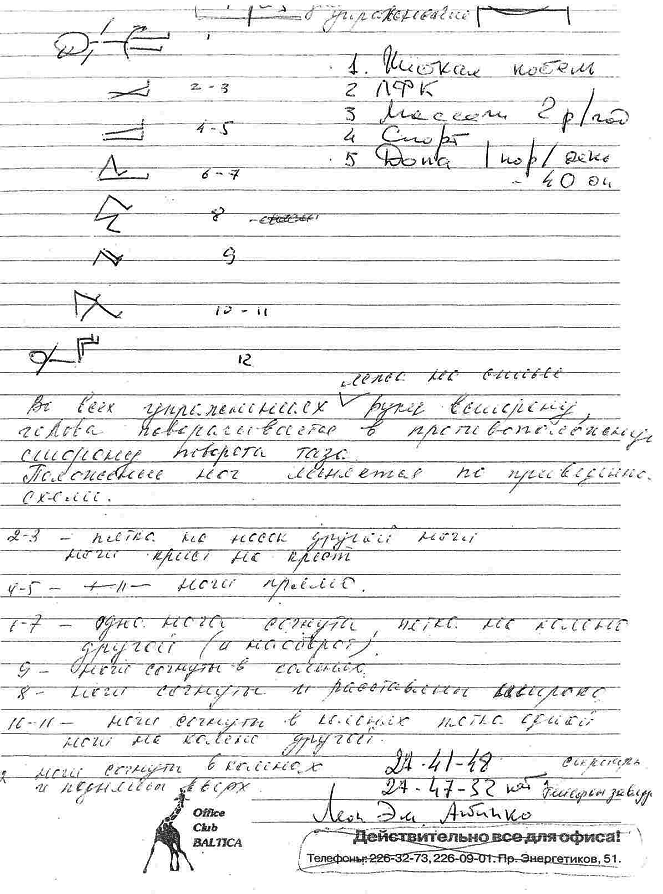 упражнение
1
1. Жесткая постель
2-3
2 ЛФК
3 Массаж 2 р/год
4-5
4 Спорт
5 Дома 1 пор/день
6-7
- 40
8
9
10-11
12
лежа на спине
Во всех упражнениях руки в сторону,
голова поворачивается в противоположную
сторону поворота таза.
Положение ног меняется по
схеме.
2-3 - пятка на носок другой ноги
ноги крест на крест
4-5 - -//- ноги прямо.
6-7 - одна нога согнута, пятка на колено
другой (и наоборот)
9 - ноги согнуты в коленях
8 - ноги согнуты и расставлены широко
10-11 - ноги согнуты в коленях пятка одной
ноги на колене другой.
ноги согнуты в коленях
и подняты вверх.
27-41-48
27-47-32
Office
Club
BALTICA
Действительно все для офиса!
Телефоны: 226-32-73, 226-09-01. Пр. Энергетиков, 51.